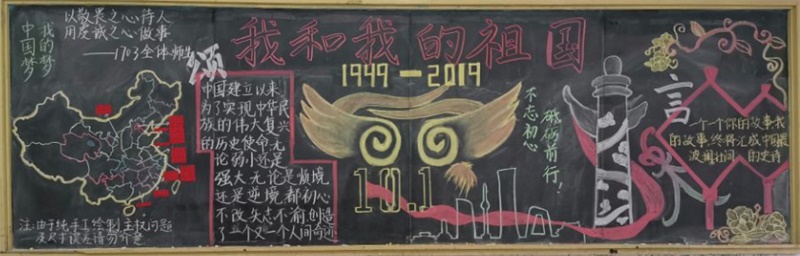 我的梦
中国梦
以敬畏之心待人
用虔诚之心做事
——1703全体师生
颂
我和我的祖国
1949—2019
中国建立以来
为了实现中华民
族的伟大复兴
的历史使命无
论弱小还是
强大无论是顺境
还是逆境都初心
不改矢志不渝创造
了一个又一个人间奇迹
10.1
不忘初心
砥砺前行!
言
一个个你的故事我
的故事,终将汇成中国最
波澜壮阔的史诗
注:由于纯手工绘制,主权问题